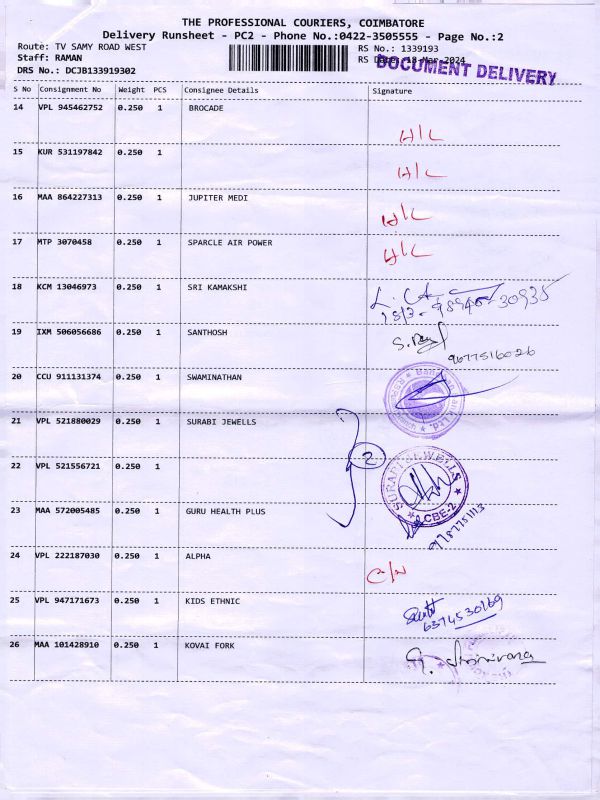 THE PROFESSIONAL COURIERS, COIMBATORE
Delivery Runsheet - PC2 - Phone No.:0422-3505555 - Page No.:2
Route: TV SAMY ROAD WEST
RS No.: 1339193
Staff: RAMAN
RS Date: 18-Mar-2024
DOCUMENT DELIVERY
DRS No.: DCJB133919302
S No Consignment No Weight PCS Consignee Details Signature
14 VPL 945462752 0.250 1 BROCADE
D/L
15 KUR 531197842 0.250 1
D/L
16 MAA 864227313 0.250 1 JUPITER MEDI
D/L
17 MTP 3070458 0.250 1 SPARCLE AIR POWER
D/L
18 KCM 13046973 0.250 1 SRI KAMAKSHI
18/3 - 98940-30935
19 IXM 506056686 0.250 1 SANTHOSH
9677516026
20 CCU 911131374 0.250 1 SWAMINATHAN
21 VPL 521880029 0.250 1 SURABI JEWELLS
2
22 VPL 521556721 0.250 1
SURABI JEWELLS
CBE-2
23 MAA 572005485 0.250 1 GURU HEALTH PLUS
24 VPL 222187030 0.250 1 ALPHA
25 VPL 947171673 0.250 1 KIDS ETHNIC
6374530169
26 MAA 101428910 0.250 1 KOVAI FORK